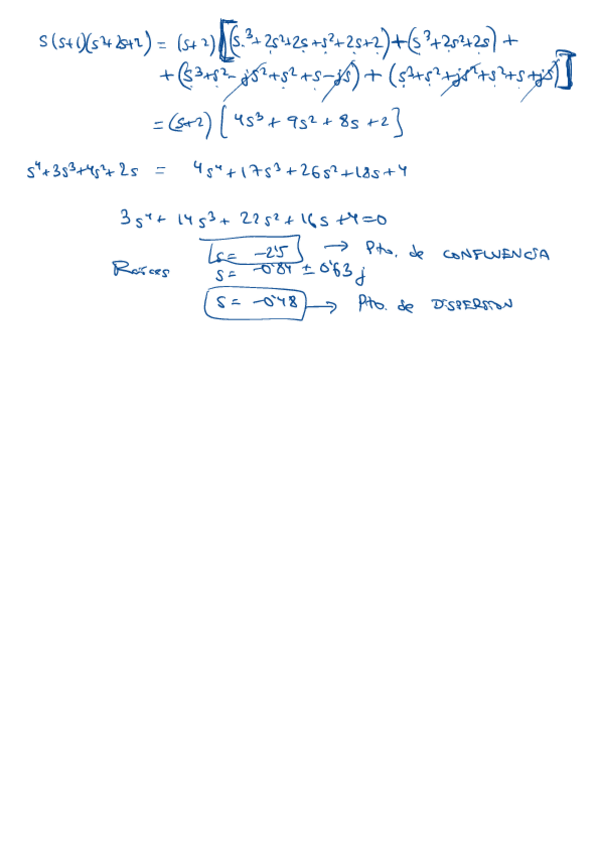 s(s+1)(s²+2s+2) = (s+2) [(s³+2s²+2s+s²+2s+2)+(s³+2s²+2s) +
+(s³+s²-js²+s²+s-js) + (s³+s²+js²+s²+s+js)]
= (s+2) [4s³ + 9s² + 8s + 2]
s⁴+3s³+4s²+2s = 4s⁴+17s³+26s²+18s+4
3s⁴+14s³+22s²+16s+4=0
s= -2'5 → Pto. de CONFLUENCIA
Raíces s= -0'84 ± 0'63j
s= -0'48 → Pto. de DISPERSION